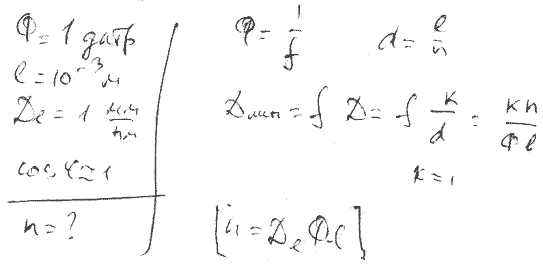 Φ = 1 дптр
l = 10⁻³ м
D_l = 1 мм/нм
cos φ ≃ 1
n = ?
Φ = 1/f   d = l/n
D_лин = f D = f k/d = kn/Φl
k = 1
[n = D_l Φl]